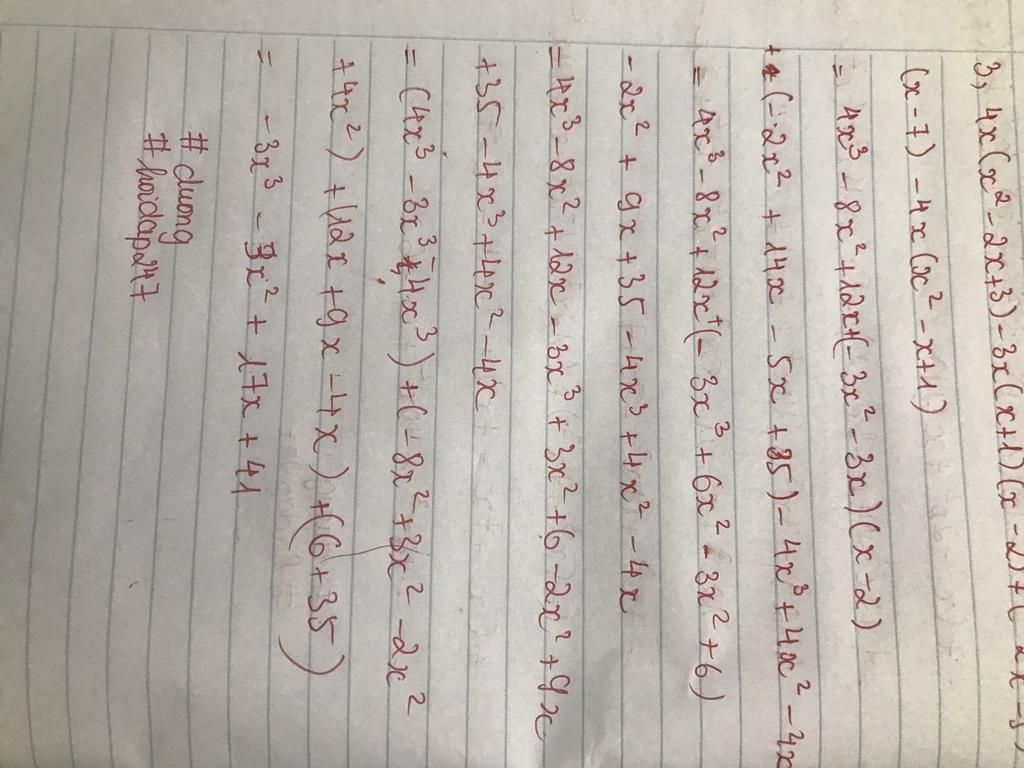 3, 4x(x² - 2x + 3) - 3x(x+1)(x - 2) + (-2x - 5)
(x - 7) - 4x(x² - x + 1)
= 4x³ - 8x² + 12x + (-3x² - 3x)(x - 2)
+ (-2x² + 14x - 5x + 35) - 4x³ + 4x² - 4x
= 4x³ - 8x² + 12x + (- 3x³ + 6x² - 3x² + 6)
- 2x² + 9x + 35 - 4x³ + 4x² - 4x
= 4x³ - 8x² + 12x - 3x³ + 3x² + 6 - 2x² + 9x
+ 35 - 4x³ + 4x² - 4x
= (4x³ - 3x³ - 4x³) + (- 8x² + 3x² - 2x²
+ 4x²) + (12x + 9x - 4x) + (6 + 35)
= - 3x³ - 3x² + 17x + 41
# duong
# hoidap247